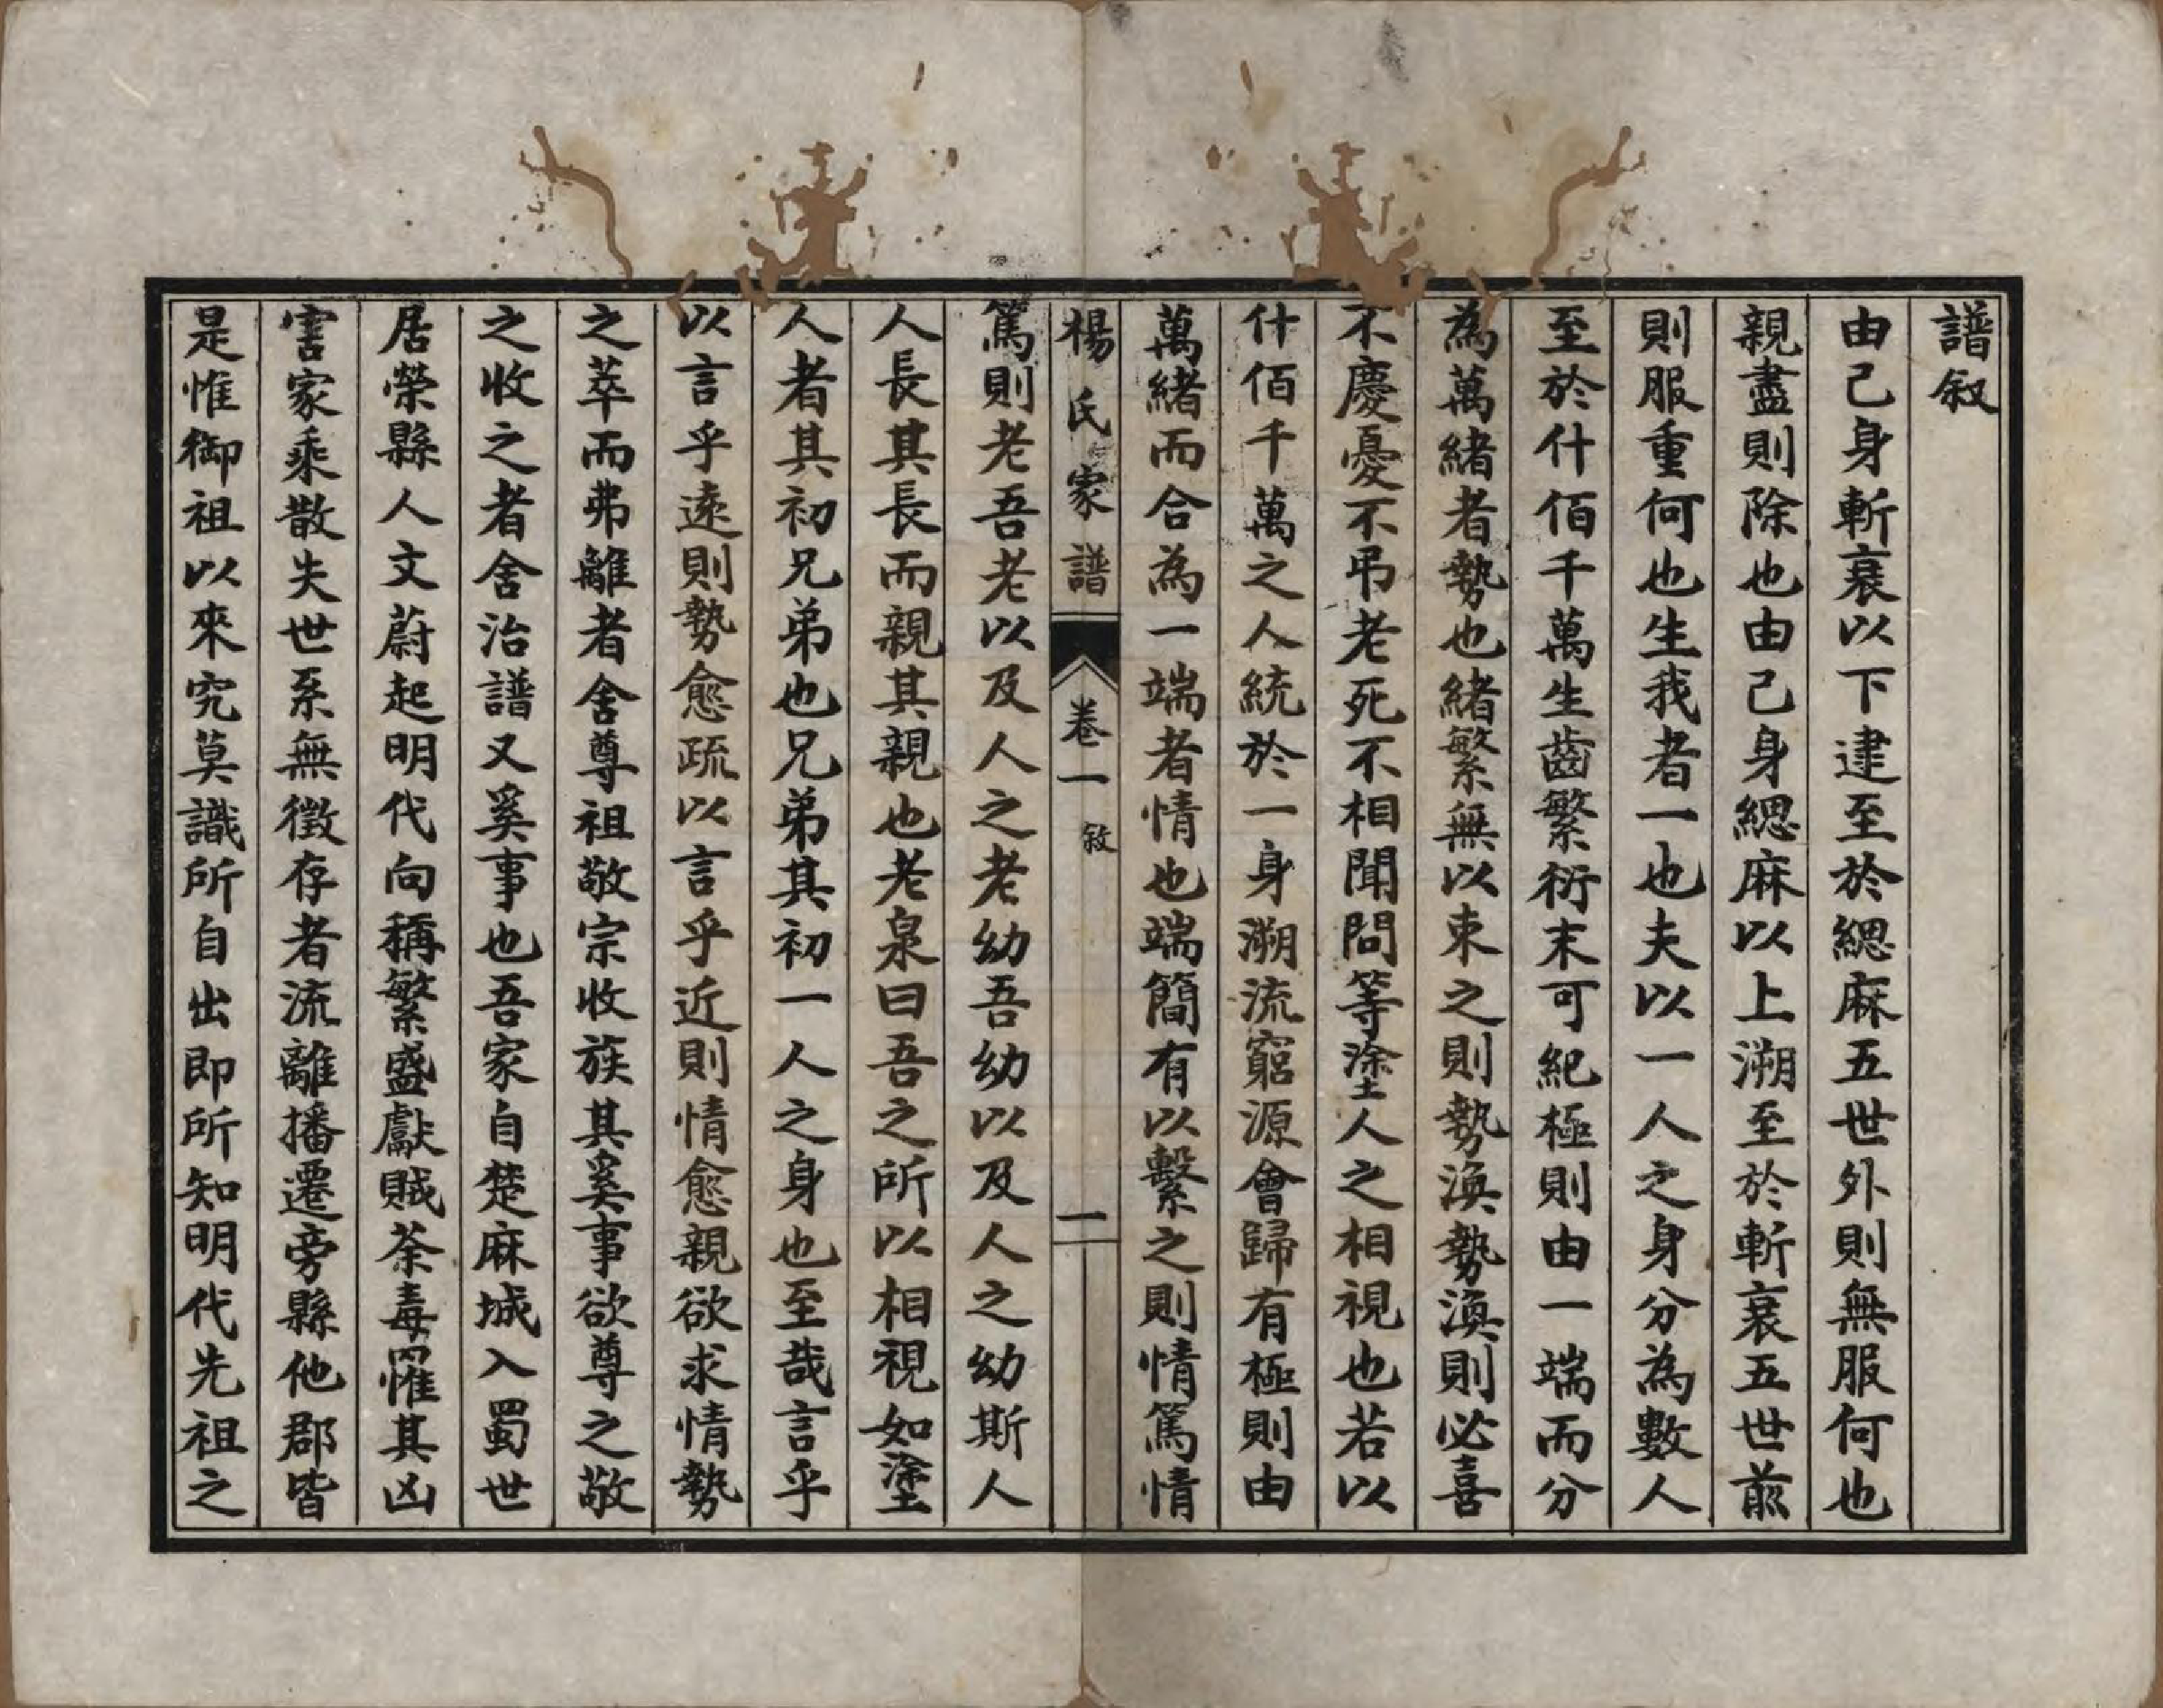 譜叙
由己身斬衰以下建至於緦麻五世外則無服何也
親盡則除也由己身緦麻以上溯至於斬衰五世前
則服重何也生我者一也夫以一人之身分為數人
至於什佰千萬生齒繁衍末可紀極則由一端而分
為萬緒者勢也緒繁無以束之則勢渙勢渙則必喜
不慶憂不吊老死不相聞問等塗人之相視也若以
什佰千萬之人統於一身溯流窮源會歸有極則由
萬緒而合為一端者情也端簡有以繫之則情篤情
楊氏家譜
卷一
敘
一
篤則老吾老以及人之老幼吾幼以及人之幼斯人
人長其長而親其親也老泉曰吾之所以相視如塗
人者其初兄弟也兄弟其初一人之身也至哉言乎
以言乎遠則勢愈疏以言乎近則情愈親欲求情勢
之萃而弗離者舍尊祖敬宗收族其奚事欲尊之敬
之收之者舍治譜又奚事也吾家自楚麻城入蜀世
居榮縣人文蔚起明代向稱繁盛獻賊荼毒罹其凶
害家乘散失世系無徵存者流離播遷旁縣他郡皆
是惟御祖以來究莫識所自出即所知明代先祖之